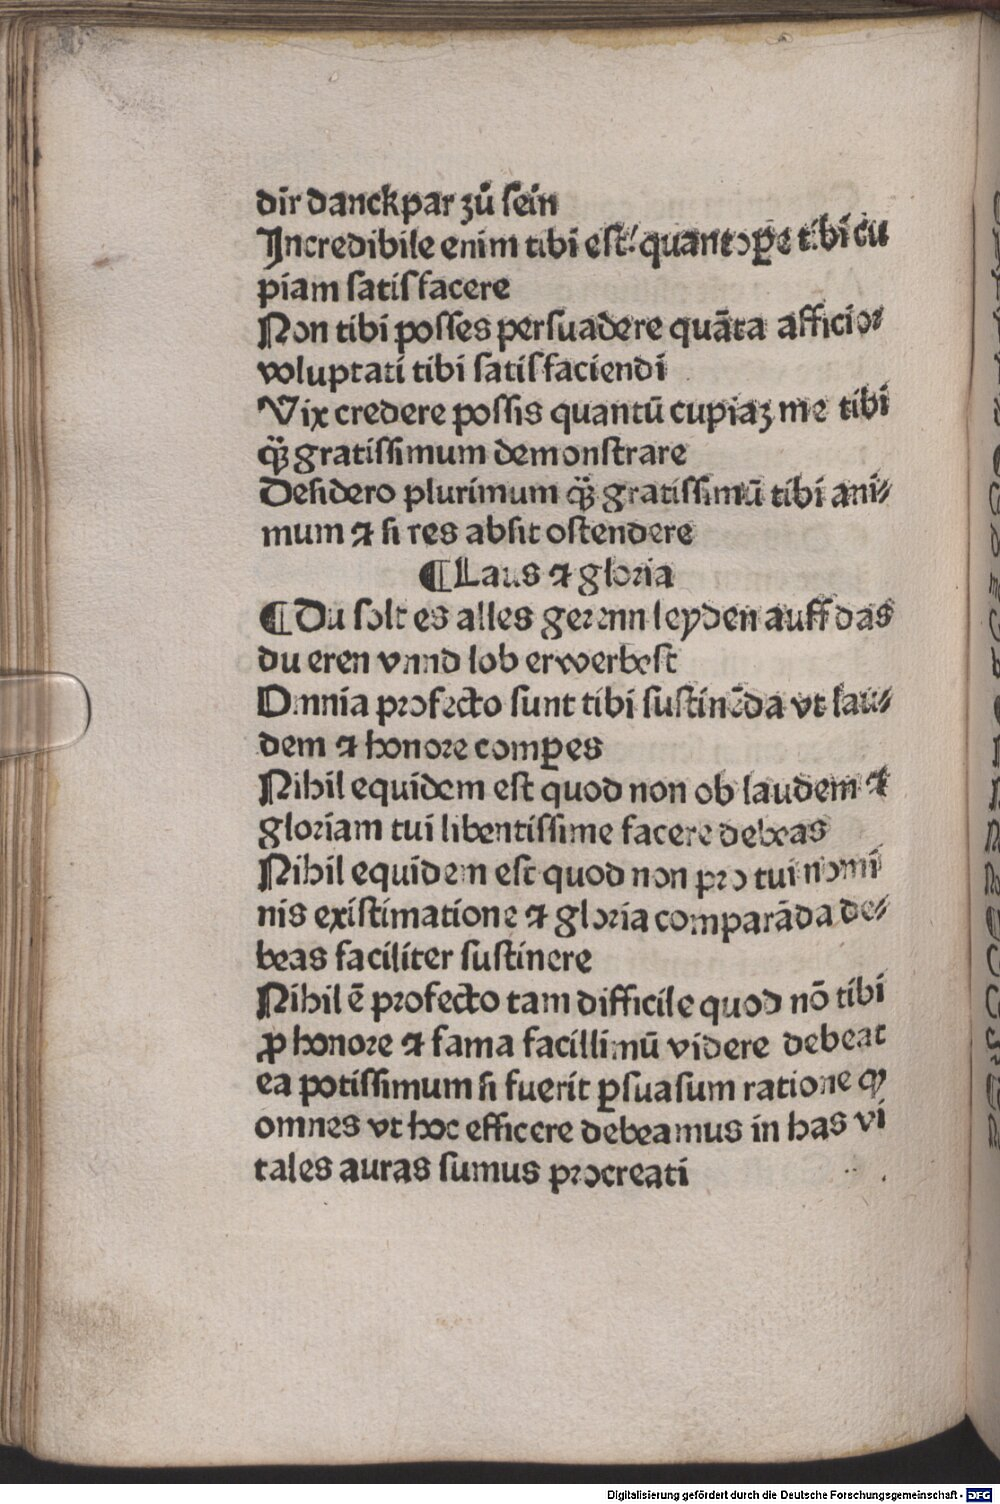 dir danckpar zů sein
Incredibile enim tibi est! quantoꝑe tibi cu
piam satisfacere
Non tibi posses persuadere quāta afficior
voluptati tibi satisfaciendi
Vix credere possis quantū cupiaꝫ me tibi
qꝫ̈ gratissimum demonstrare
Desidero plurimum qꝫ̈ gratissimū tibi ani⸗
mum ⁊ si res absit ostendere
¶ Laus ⁊ gloria
¶ Du solt es alles gerenn leyden auff das
du eren vnnd lob erwerbest
Omnia profecto sunt tibi sustinēda vt lau⸗
dem ⁊ honore comꝑes
Nihil equidem est quod non ob laudem ⁊
gloriam tui libentissime facere debeas
Nihil equidem est quod non pro tui nomi
nis existimatione ⁊ gloria comparāda de⸗
beas faciliter sustinere
Nihil ē profecto tam difficile quod nō tibi
ꝓ honore ⁊ fama facillimū videre debeat
ea potissimum si fuerit ꝑsuasum ratione ꝙ
omnes vt hoc efficere debeamus in has vi
tales auras sumus procreati
Digitalisierung gefördert durch die Deutsche Forschungsgemeinschaft - DFG